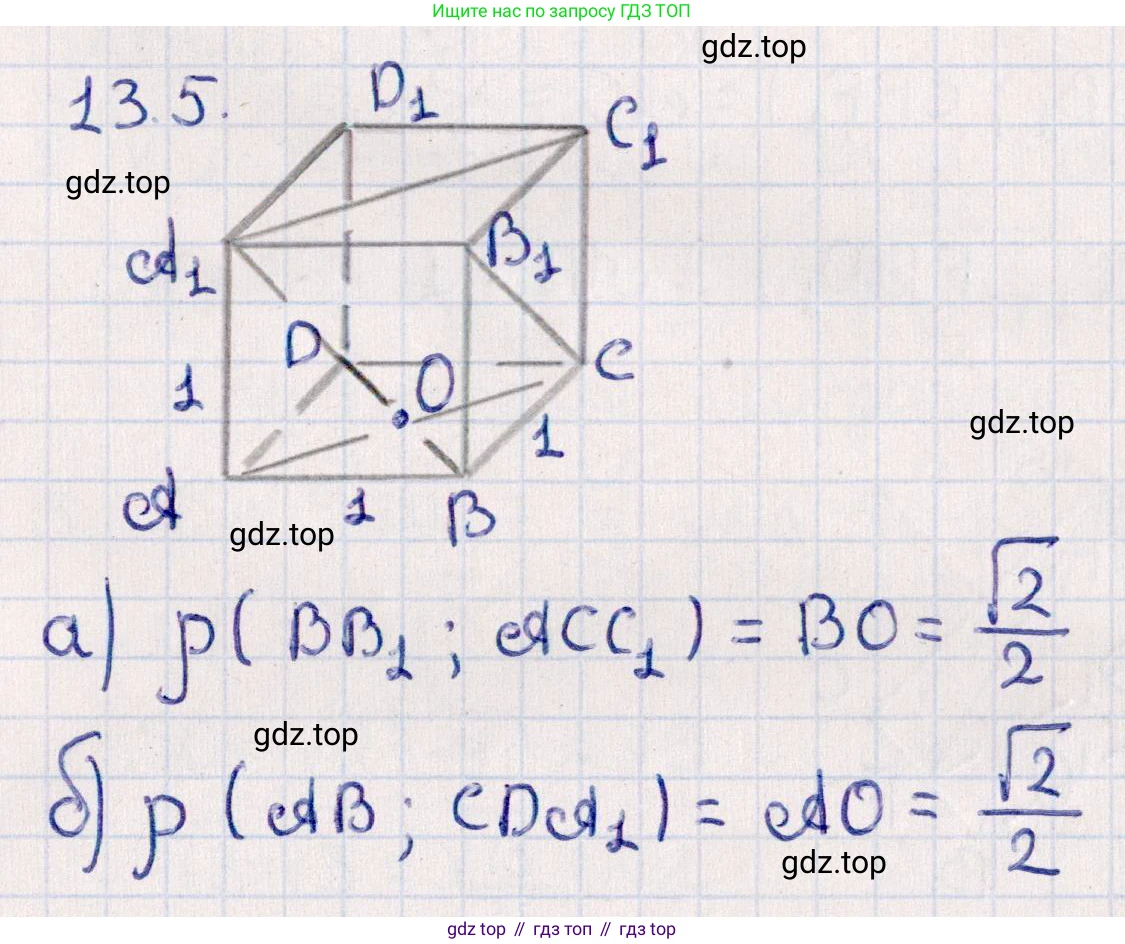 Ищите нас по запросу ГДЗ ТОП
gdz.top
13.5.
D₁
C₁
gdz.top
A₁
B₁
D
O
C
1
gdz.top
1
A
1
B
gdz.top
а) ρ( BB₁ ; ACC₁ ) = BO = √2/2
gdz.top
б) ρ ( AB ; CDA₁ ) = AO = √2/2
gdz.top
gdz top // гдз топ // gdz top